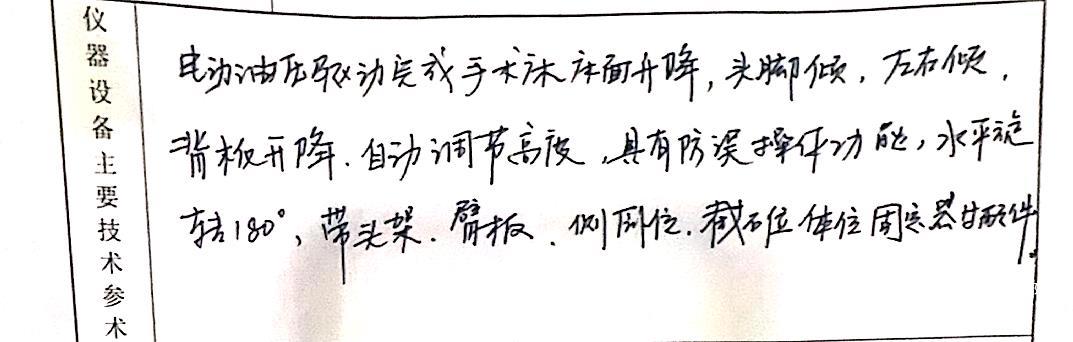 仪器设备主要技术参术
电动油压驱动完成手术床床面升降，头脚倾，左右倾，
背板升降．自动调节高度，具有防误操作功能，水平旋
转180°，带头架．臂板．侧卧位．截石位体位固定器等配件。